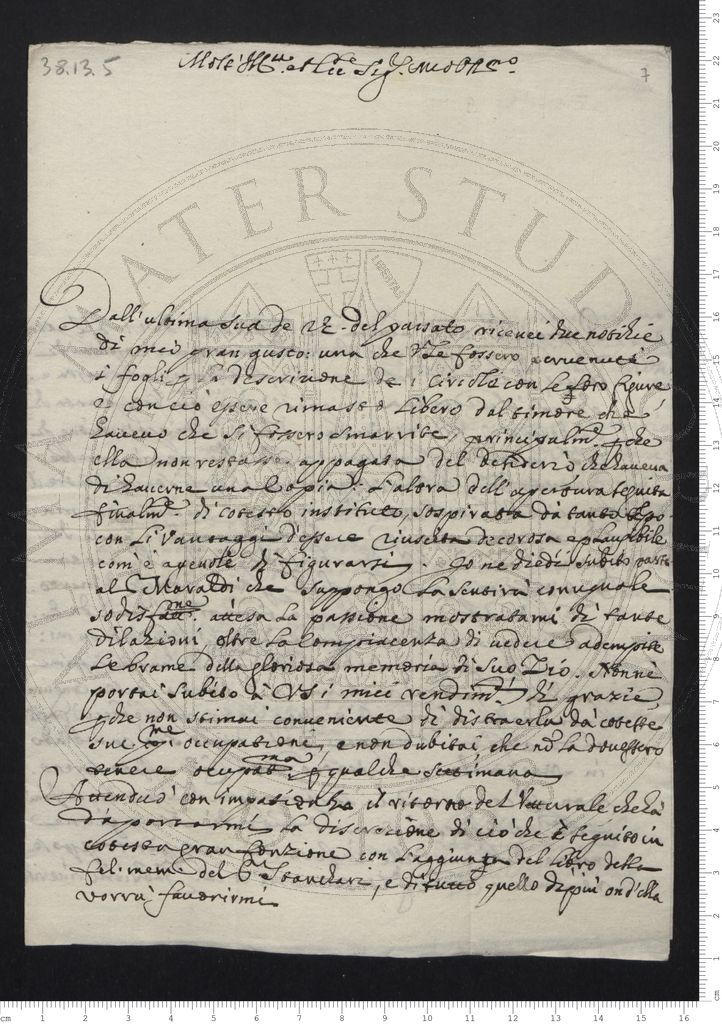 38.13.5
7
Molt' Ill.re et Sig.r
Dall'ultima sua de 22. del passato ricevei due notitie
di mio gran gusto: una che V.S. le fossero pervenuti
i fogli p la descrizione de i Circoli con le loro figure
e con ciò essere rimasto libero dal timore che
havevo che si fossero smarrite, principalm.te pche
ella non restasse appagata del desiderio che haveva
di haverne una Copia: L'altra dell'apertura seguita
finalm.te di cotesto instituto, sospirata da tanto tpo
con li vantaggi d'essere riuscita decorosa e plausibile
com'è agevole di figurarsi. Io ne diedi subito parte
al Maraldi che suppongo la sentirà con uguale
sodisfatt.ne attesa la passione mostratami di tante
dilazioni, oltre la compiacenza di vedere adempite
le brame della gloriosa memoria di suo Zio. Non ne
portai subito à V.S. i miei rendim.ti di grazie,
pche non stimai conveniente di distraerla dà coteste
sue occupationi, e non dubitai che nō la dovessero
tenere p qualche settimana
Attendo con impatienza il ritorno del Vetturale che hà
dà portarmi la discrezione di ciò che è seguito in
cotesta gran fonzione con l'aggiunta del libro della
fel. mem. del S.r Stancari, e di tutto quello di più ond'ella
vorrà favorirmi
ALMA MATER STUDIORUM
LIBERTAS
cm 1 2 3 4 5 6 7 8 9 10 11 12 13 14 15 16
cm 1 2 3 4 5 6 7 8 9 10 11 12 13 14 15 16 17 18 19 20 21 22 23